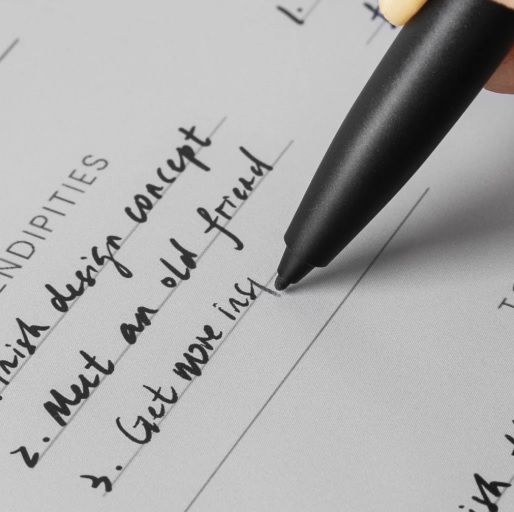 ENDIPITIES
nish design concept
2. Meet an old friend
3. Get more ins
1.
ish